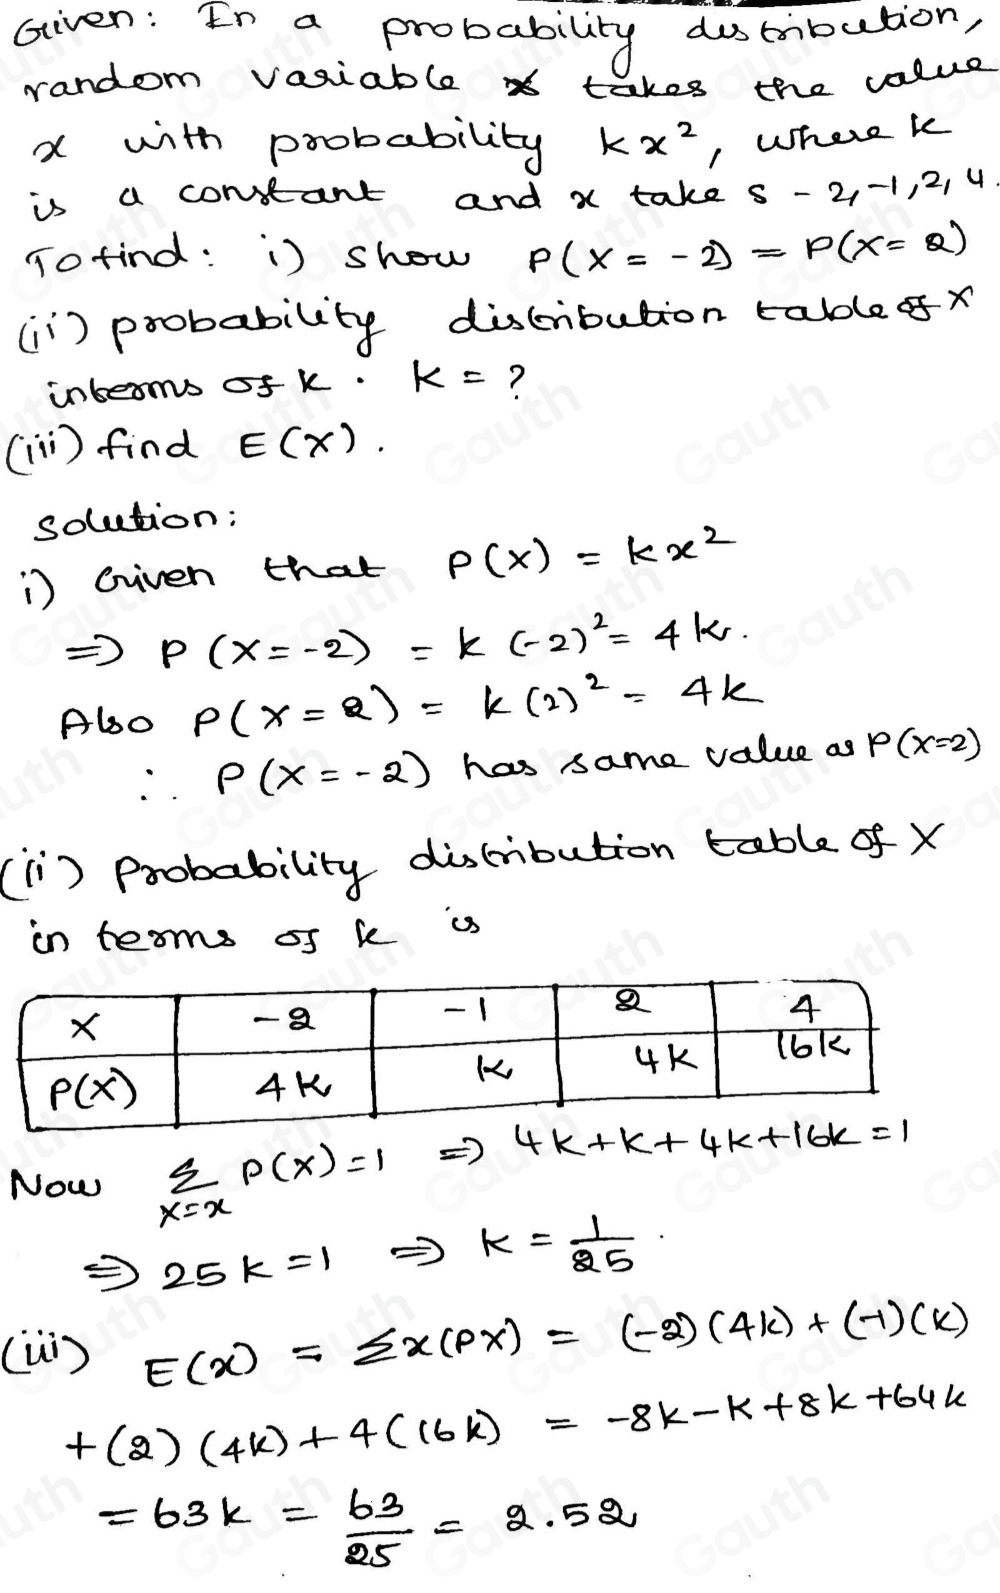 Given: In a probability distribution,
random variable X takes the value
x with probability kx², where k
is a constant and x takes -2,-1,2,4.
To find: i) show P(X=-2) = P(X=2)
(ii) probability distribution table of X
interms of k. k = ?
(iii) find E(X).
solution:
i) Given that P(X) = kx²
⇒ P(X=-2) = k(-2)² = 4k.
Also P(X=2) = k(2)² = 4k
∴ P(X=-2) has same value as P(X=2)
(ii) Probability distribution table of X
in terms of k is
X -2 -1 2 4
P(X) 4k k 4k 16k
Now Σ P(X)=1 ⇒ 4k+k+4k+16k=1
X=x
⇒ 25k=1 ⇒ k = 1/25.
(iii) E(x) = Σx(PX) = (-2)(4k)+(-1)(k)
+(2)(4k)+4(16k) = -8k-k+8k+64k
= 63k = 63/25 = 2.52